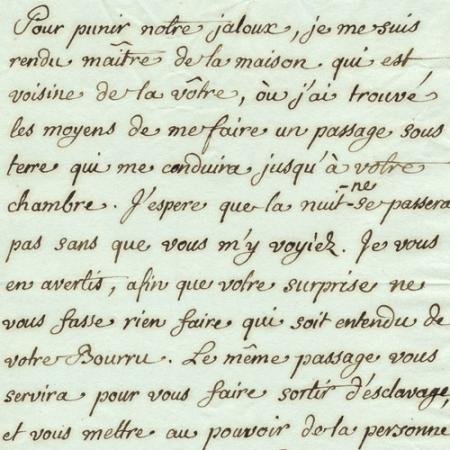 Pour punir notre jaloux, je me suis
rendu maître de la maison qui est
voisine de la vôtre, où j'ai trouvé
les moyens de me faire un passage sous
terre qui me conduira jusqu'à votre
chambre. J'espere que la nuit -ne se passera
pas sans que vous m'y voyiez. Je vous
en avertis, afin que votre surprise ne
vous fasse rien faire qui soit entendu de
votre Bourru. Le même passage vous
servira pour vous faire sortir d'esclavage,
et vous mettre au pouvoir de la personne